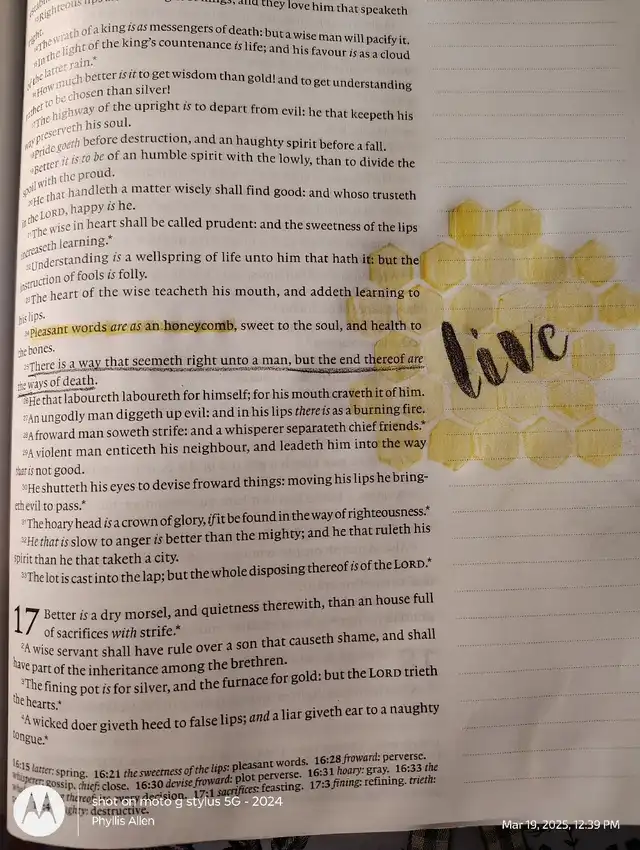 ings, and they love him that speaketh
right.
14The wrath of a king is as messengers of death: but a wise man will pacify it.
15In the light of the king's countenance is life; and his favour is as a cloud
of the latter rain.*
16How much better is it to get wisdom than gold! and to get understanding
to be chosen than silver!
17The highway of the upright is to depart from evil: he that keepeth his
way preserveth his soul.
18Pride goeth before destruction, and an haughty spirit before a fall.
19Better it is to be of an humble spirit with the lowly, than to divide the
spoil with the proud.
20He that handleth a matter wisely shall find good: and whoso trusteth
in the LORD, happy is he.
21The wise in heart shall be called prudent: and the sweetness of the lips
increaseth learning.*
22Understanding is a wellspring of life unto him that hath it: but the
instruction of fools is folly.
23The heart of the wise teacheth his mouth, and addeth learning to
his lips.
24Pleasant words are as an honeycomb, sweet to the soul, and health to
the bones.
25There is a way that seemeth right unto a man, but the end thereof are
the ways of death.
26He that laboureth laboureth for himself; for his mouth craveth it of him.
27An ungodly man diggeth up evil: and in his lips there is as a burning fire.
28A froward man soweth strife: and a whisperer separateth chief friends.*
29A violent man enticeth his neighbour, and leadeth him into the way
that is not good.
30He shutteth his eyes to devise froward things: moving his lips he bring-
eth evil to pass.*
31The hoary head is a crown of glory, if it be found in the way of righteousness.*
32He that is slow to anger is better than the mighty; and he that ruleth his
spirit than he that taketh a city.
33The lot is cast into the lap; but the whole disposing thereof is of the LORD.*
17 Better is a dry morsel, and quietness therewith, than an house full
of sacrifices with strife.*
2A wise servant shall have rule over a son that causeth shame, and shall
have part of the inheritance among the brethren.
3The fining pot is for silver, and the furnace for gold: but the LORD trieth
the hearts.*
4A wicked doer giveth heed to false lips; and a liar giveth ear to a naughty
tongue.*
16:15 latter: spring. 16:21 the sweetness of the lips: pleasant words. 16:28 froward: perverse.
whisperer: gossip. chief: close. 16:30 devise froward: plot perverse. 16:31 hoary: gray. 16:33 the
thereof: its every decision. 17:1 sacrifices: feasting. 17:3 fining: refining. trieth:
destructive.
live
shot on moto g stylus 5G - 2024
Phyllis Allen
Mar 19, 2025, 12:39 PM